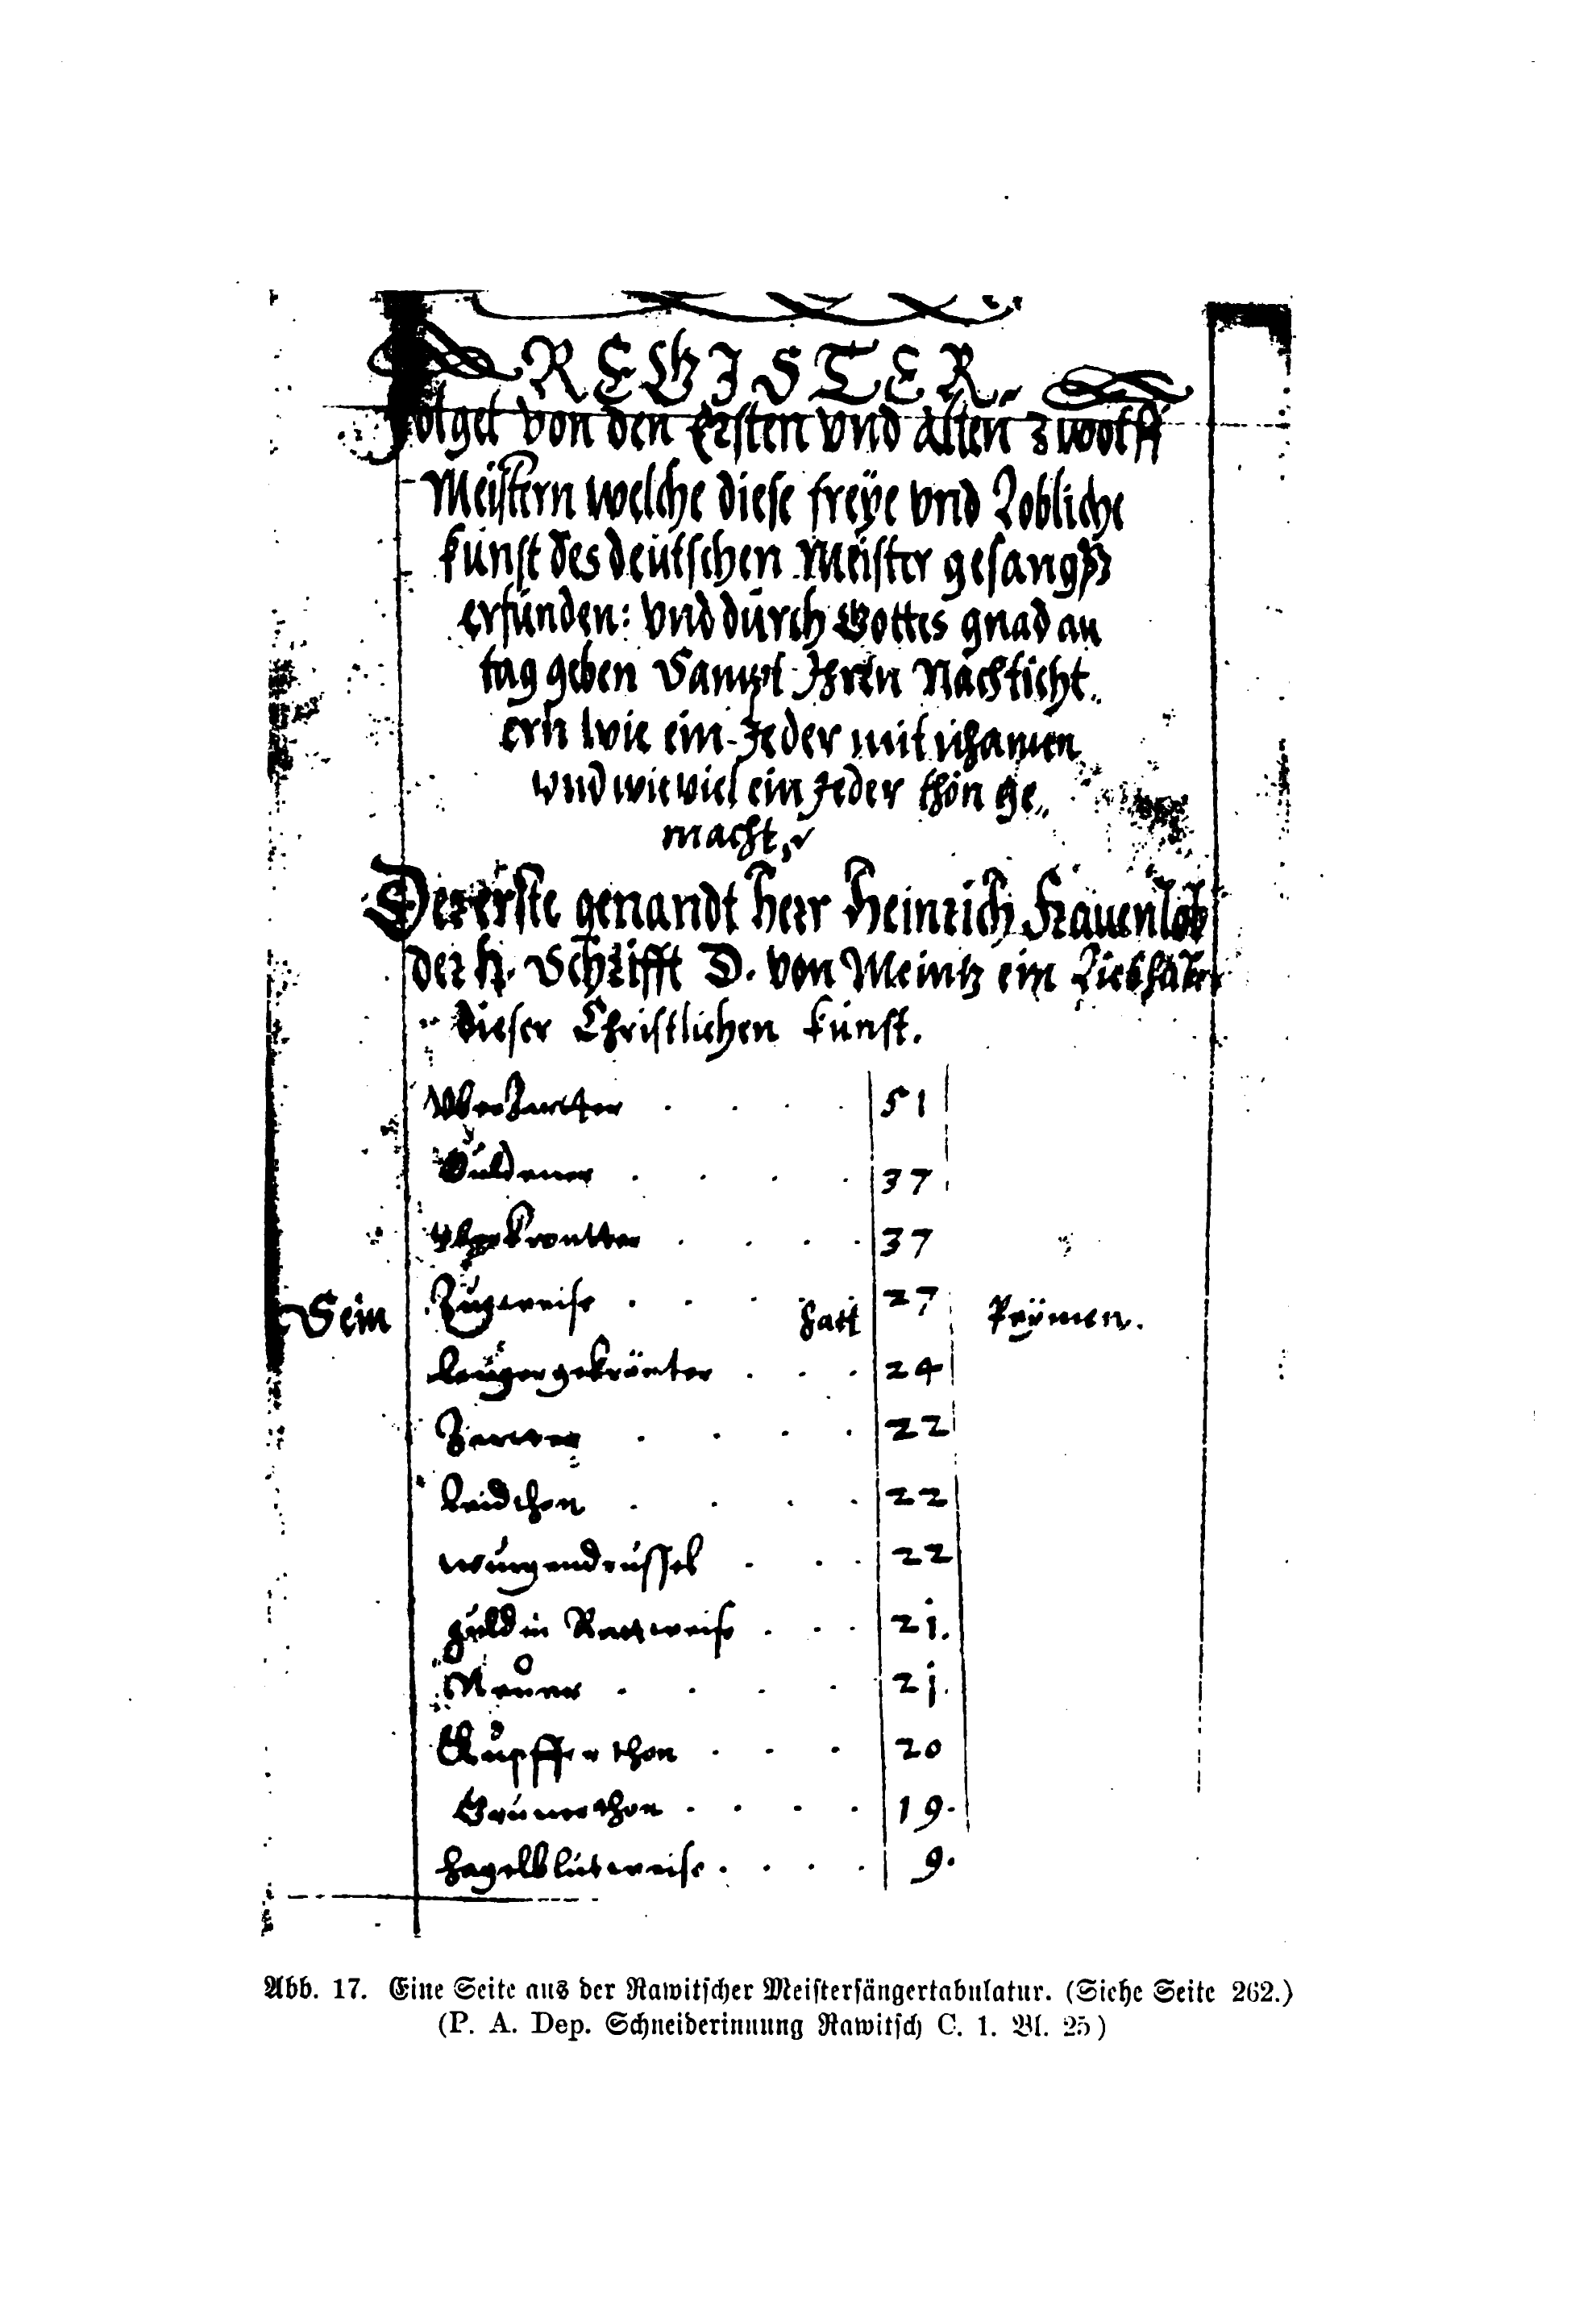 REGISTER.
folget von den Ersten vnd alten zwolff
Meistern welche diese freÿe vnd Lobliche
kunst des deutschen Meister gesangß
erfunden: vnd durch Gottes gnad an
tag geben Sampt Ihren Nachticht„
ern wie ein Jeder mit nhamen
vnd wie viel ein Jeder thon ge„
macht,
Der erste genandt Herr Heinrich Frauenlob
der H. Schrifft D. von Meintz ein Liebhaber
dieser Christlichen kunst.
Vberzartter . . . . 51
Guldener . . . . 37
37
Sein Zugweise . . . . hatt 27 Reÿmen.
langer gekrönter . . . 24
Zartter . . . . 22
leidchen . . . . 22
wurgendrüssel . . . 22
guldin Ratweise . . . 21.
Neuer . . . . 21.
Kupffer thon . . . 20
Gruner thon . . . . 19.
hagelblutweise . . . . 9.
Abb. 17. Eine Seite aus der Rawitscher Meistersängertabulatur. (Siehe Seite 262.)
(P. A. Dep. Schneiderinnung Rawitsch C. 1. Bl. 25)